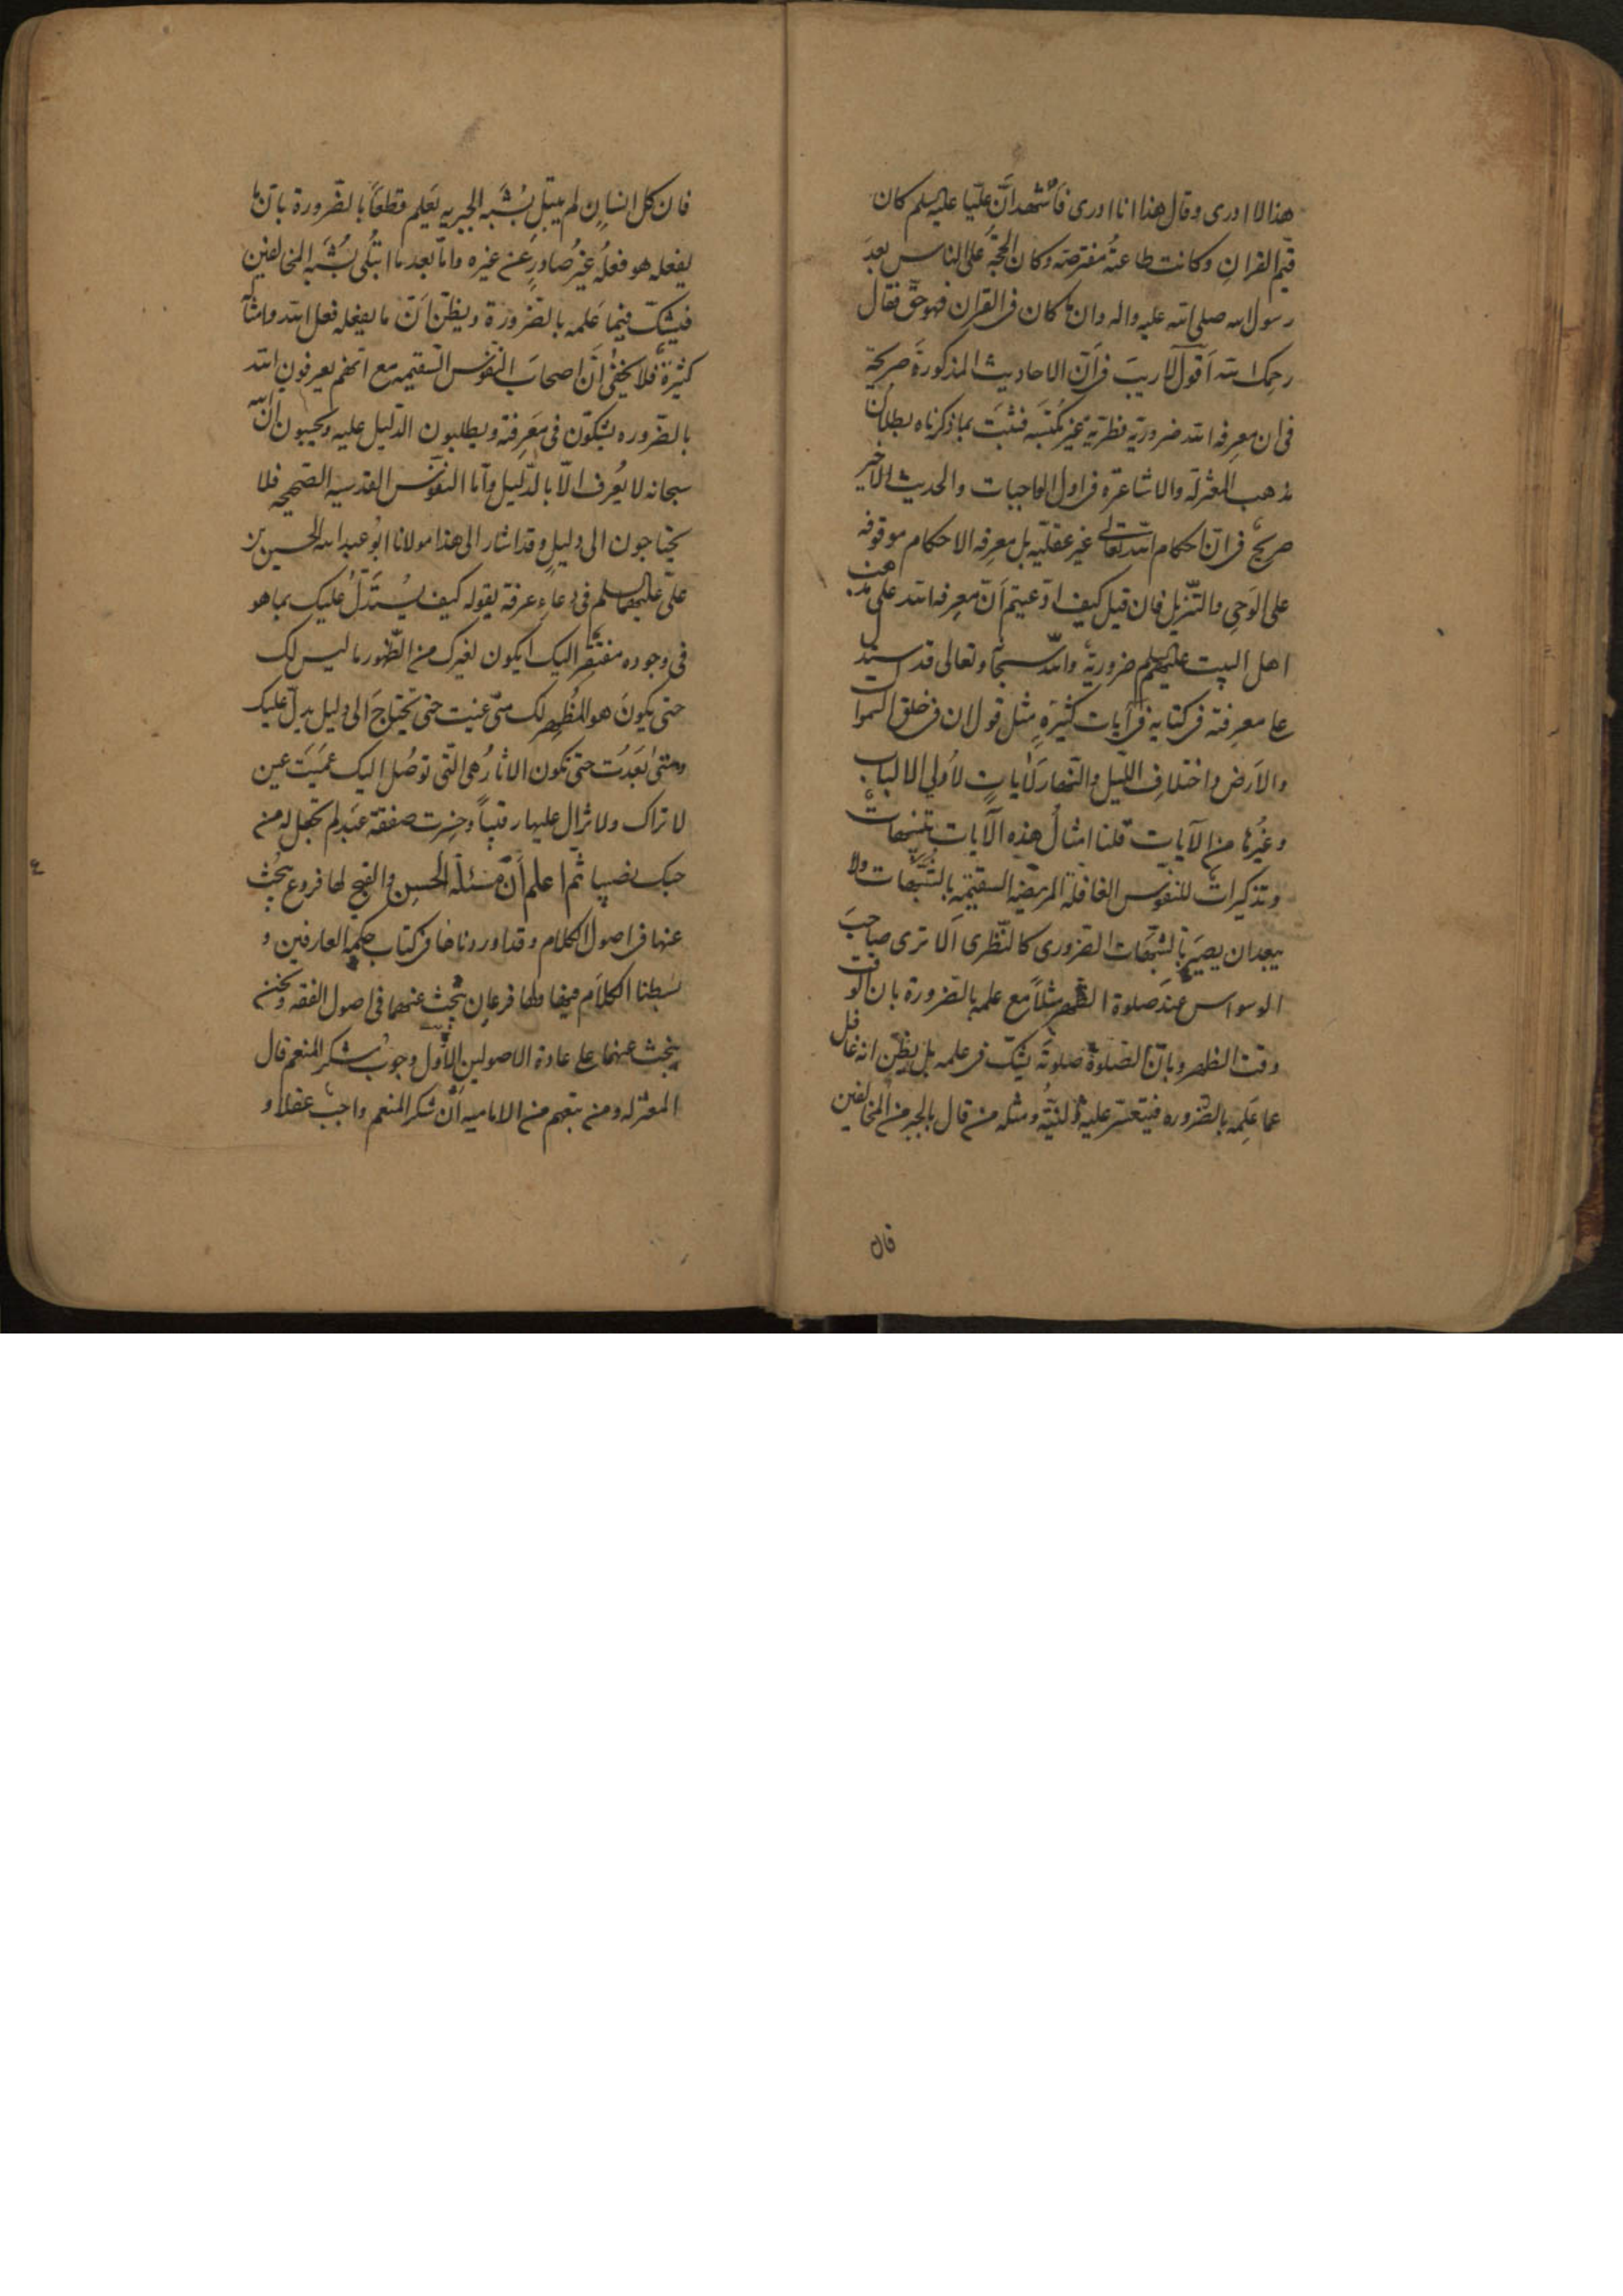 هذا لا ادرى وقال هذا انا ادرى فأشهد أنّ عليّا عليه السلم كان
قيّم القران وكانت طاعتُه مفترضه وكان الحجّة على الناس بعدَ
رسول الله صلى الله عليه واله وان ما كان فى القران فهو حق فقال
رحمك الله اَقول لا ريبَ فى اَنّ الاحاديث المذكورةَ صريحة
فى ان معرفه الله ضروريّه فطريّة غير مُكتسَبه فثبتَ بما ذكرناه بطلان
مذهب المعتزله والاشاعره فى اول الواجبات والحديث الاخير
صريح فى انّ احكام الله تعالى غير عقليّه بل معرفه الاحكام موقوفه
على الوَحي والتّنزيل فان قيل كيف ادّعيتم اَنّ معرفه الله على مذهب
اهل البيت عليهم السلم ضروريةٌ والله سبحانه وتعالى قد استدل
على معرفته فى كتابه فى آيات كثيرَهٍ مثل قوله ان فى خلق السموات
والاَرض واختلافِ اللّيل والنّهار لَاٰياتٍ لأُولي الالباب
وغيُرها من الآيات قلنا امثالُ هذه الآيات تنبيهاتٌ
وتذكيراتٌ للنفوس الغافلة المريضه السقيمه بالشّبهات ولا
يبعد ان يصيَر بالشبهات الضرورى كالنّظرى اَلا ترى صاحبَ
الوسواس عندَ صلوة الظهر مثلاً مع علمه بالضرورة بان الوقت
وقت الظهر وبانّ الصّلوةَ صلوتُه يشكّ فى علمه بل يظنّ انه غافل
عما عَلِمَه بالضروره فيتعسّر عليه النيّةُ ومثله من قال بالجبر من المخالفين
فان
فان كل انسانٍ لم يبتلِ بشُبَه الجبريه يَعلم قطعًا بالضّرورة بانّ ما
يفعله هو فعلُه غيرُ صادرٍ عن غيره وامّا بعد ما ابتُلى بشُبَه المخالفين
فيشكّ فيما عَلمه بالضّرورة ويظنّ اَنّ ما يفعله فعل الله وامثاله
كثيرةٌ فلا يخفى اَنّ اصحابَ النفوس السّقيمه مع انّهم يعرفون الله
بالضروره يشكّون فى مَعرفته ويطلبون الدّليل عليه ويحسبون اَنّ الله
سبحانه لا يُعرف الّا بالدّليل وأمّا النفوس القدسيه الصّحيحه فلا
يحتاجون الى دليلٍ وقد اشار الى هذا مولانا ابو عبد الله الحسين بن
علىّ عليهما السلم فى دعاءِ عرفة بقوله كيف يُستَدَلُ عليك بما هو
فى وجوده مفتقر اليك ايكون لغيرك من الظّهور ما ليس لك
حتى يكونَ هو المُظهِر لك متى غبت حتى تحتاجَ الى دليل يدلّ عليك
ومتى بَعَدُت حتى تكون الاثارُ هى التّى توصُل اليك عَميَت عين
لا تراك ولا تزال عليها رقيبًا وخسِرت صفقة عبد لم تجعل له من
حبك نصيبا ثم اعلم اَنّ مسئلة الحسن والقبح لها فروع يُبحث
عنها فى اصول الكلام وقد اوردناها فى كتاب حكمه العارفين و
بسَطنا الكلاَم فيها ولها فرعانِ يُبحث عنهما فى اصول الفقه ونحن
نبحث عنهما على عادة الاصولين الأول وجوب شكر المنعم قال
المعتزله ومن تبعهم من الاماميه انّ شكر المنعم واجب عقلا و